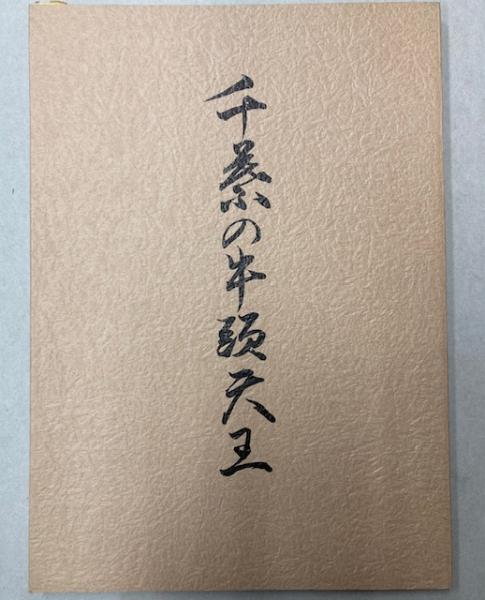 千葉の牛頭天王